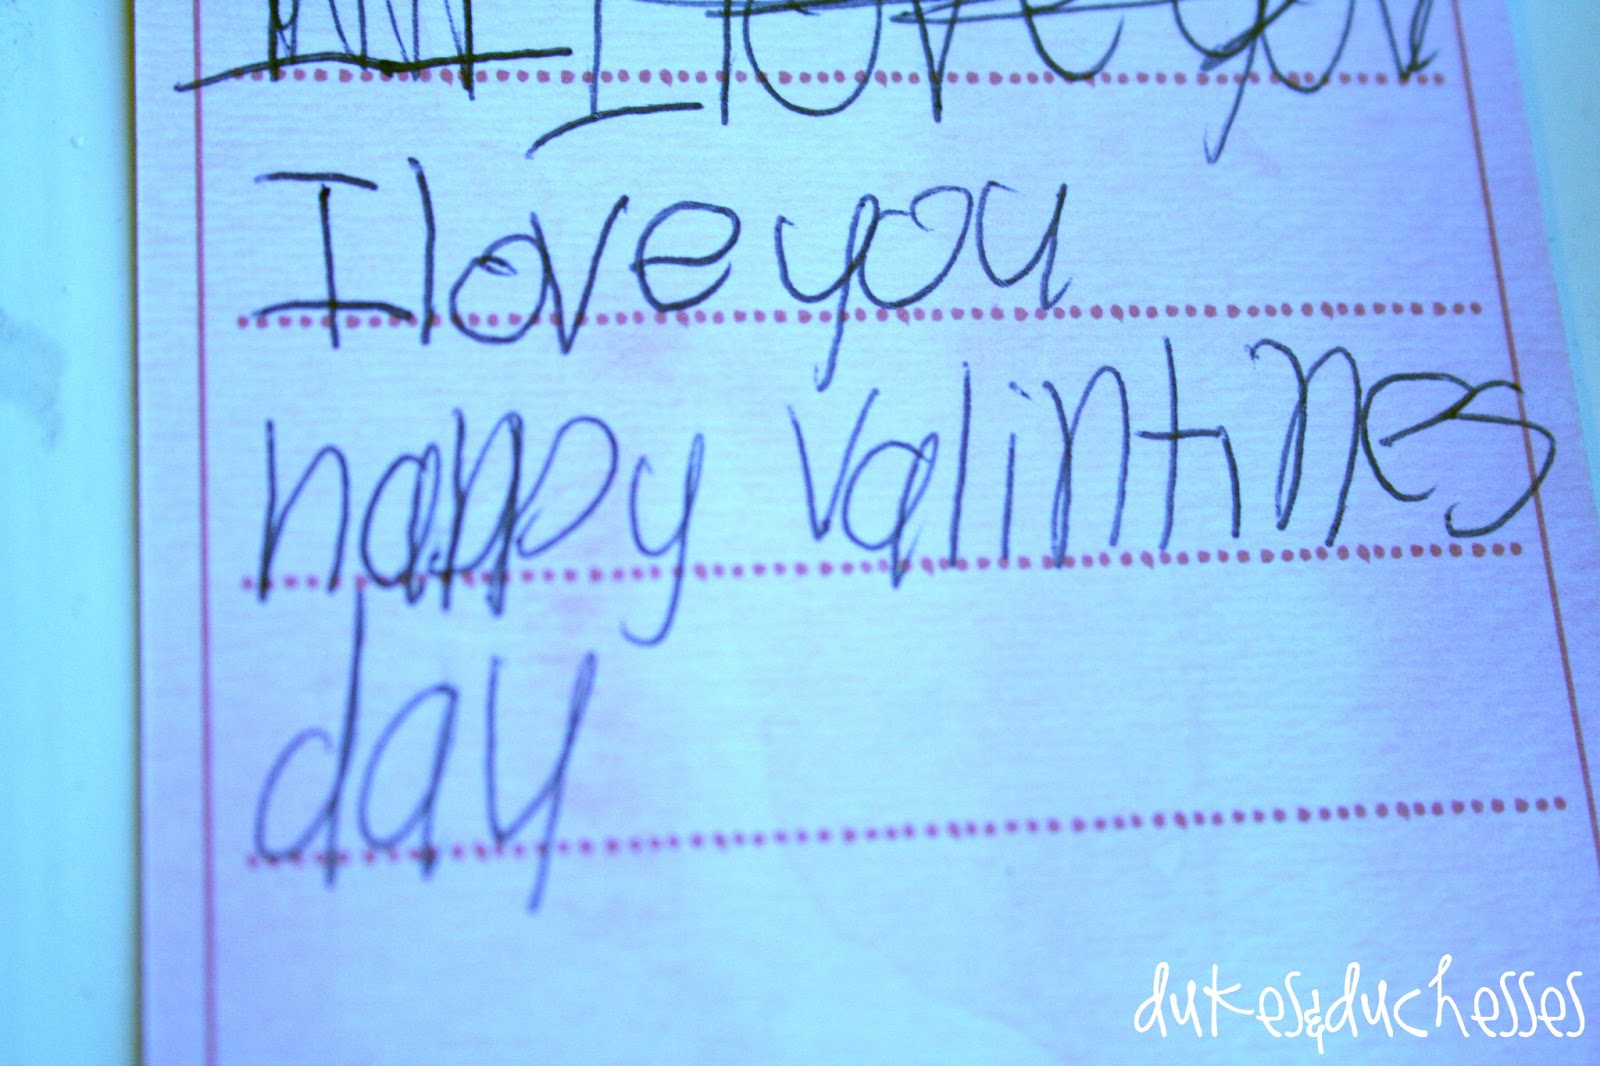 I love you
I love you
happy valintines
day
dukes&duchesses